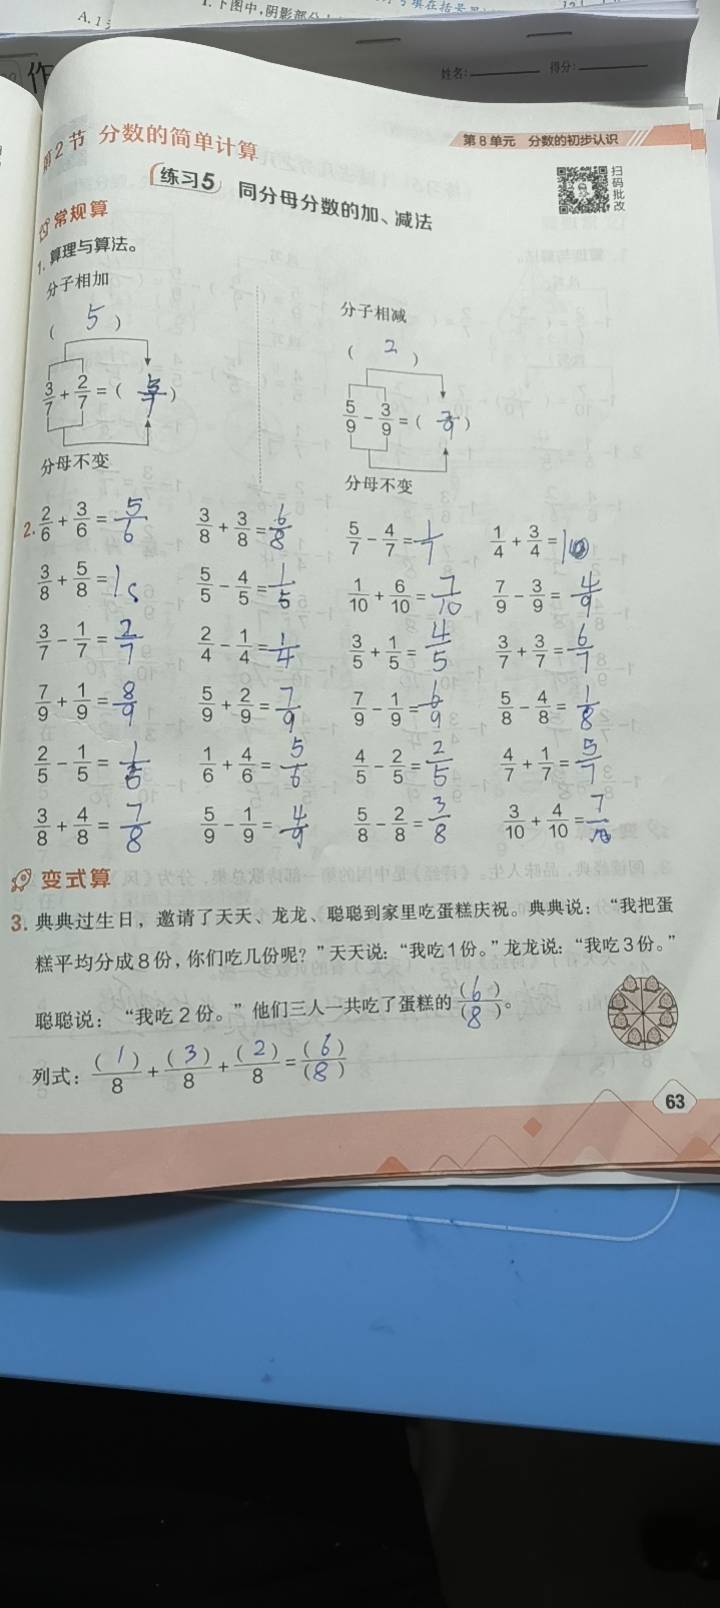 A.1
1.下图中,阴影部分
填在括号里
作
姓名: 得分:
第2节 分数的简单计算
第8单元 分数的初步认识
练习5 同分母分数的加、减法
扫码批改
常规算
1. 算理与算法。
分子相加 分子相减
( 5 ) ( 2 )
3/7 + 2/7 = ( 5/7 ) 5/9 - 3/9 = ( 2/9 )
分母不变 分母不变
2. 2/6 + 3/6 = 5/6 3/8 + 3/8 = 6/8 5/7 - 4/7 = 1/7 1/4 + 3/4 = 1
3/8 + 5/8 = 1 5/5 - 4/5 = 1/5 1/10 + 6/10 = 7/10 7/9 - 3/9 = 4/9
3/7 - 1/7 = 2/7 2/4 - 1/4 = 1/4 3/5 + 1/5 = 4/5 3/7 + 3/7 = 6/7
7/9 + 1/9 = 8/9 5/9 + 2/9 = 7/9 7/9 - 1/9 = 6/9 5/8 - 4/8 = 1/8
2/5 - 1/5 = 1/5 1/6 + 4/6 = 5/6 4/5 - 2/5 = 2/5 4/7 + 1/7 = 5/7
3/8 + 4/8 = 7/8 5/9 - 1/9 = 4/9 5/8 - 2/8 = 3/8 3/10 + 4/10 = 7/10
变式算
3. 典典过生日，邀请了天天、龙龙、聪聪到家里吃蛋糕庆祝。典典说：“我把蛋
糕平均分成8份，你们吃几份呢？”天天说：“我吃1份。”龙龙说：“我吃3份。”
聪聪说：“我吃2份。”他们三人一共吃了蛋糕的(6)/(8)。
列式：(1)/8 + (3)/8 + (2)/8 = (6)/(8)
63